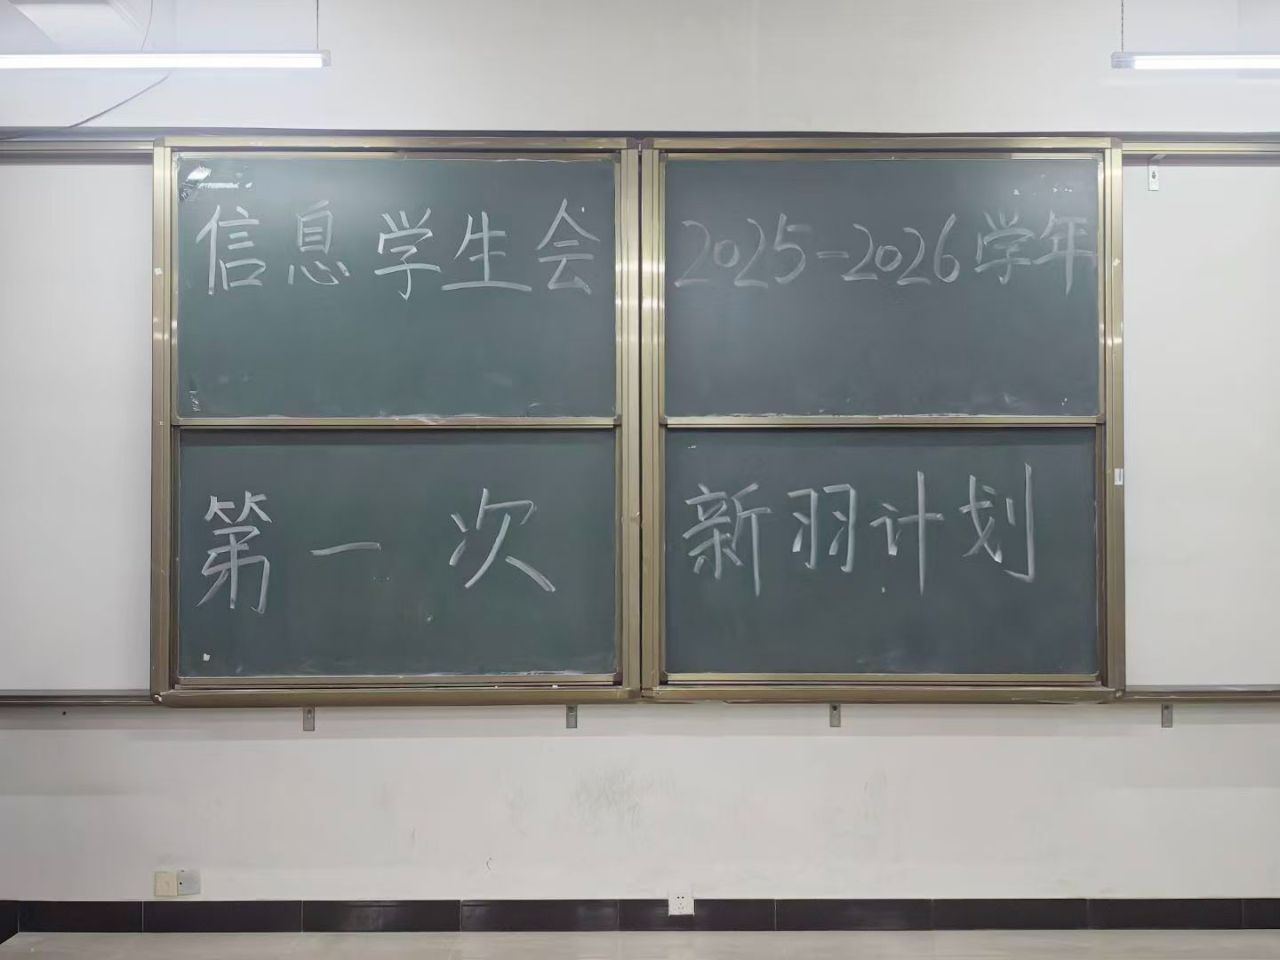 信息学生会 2025-2026学年
第一次 新羽计划